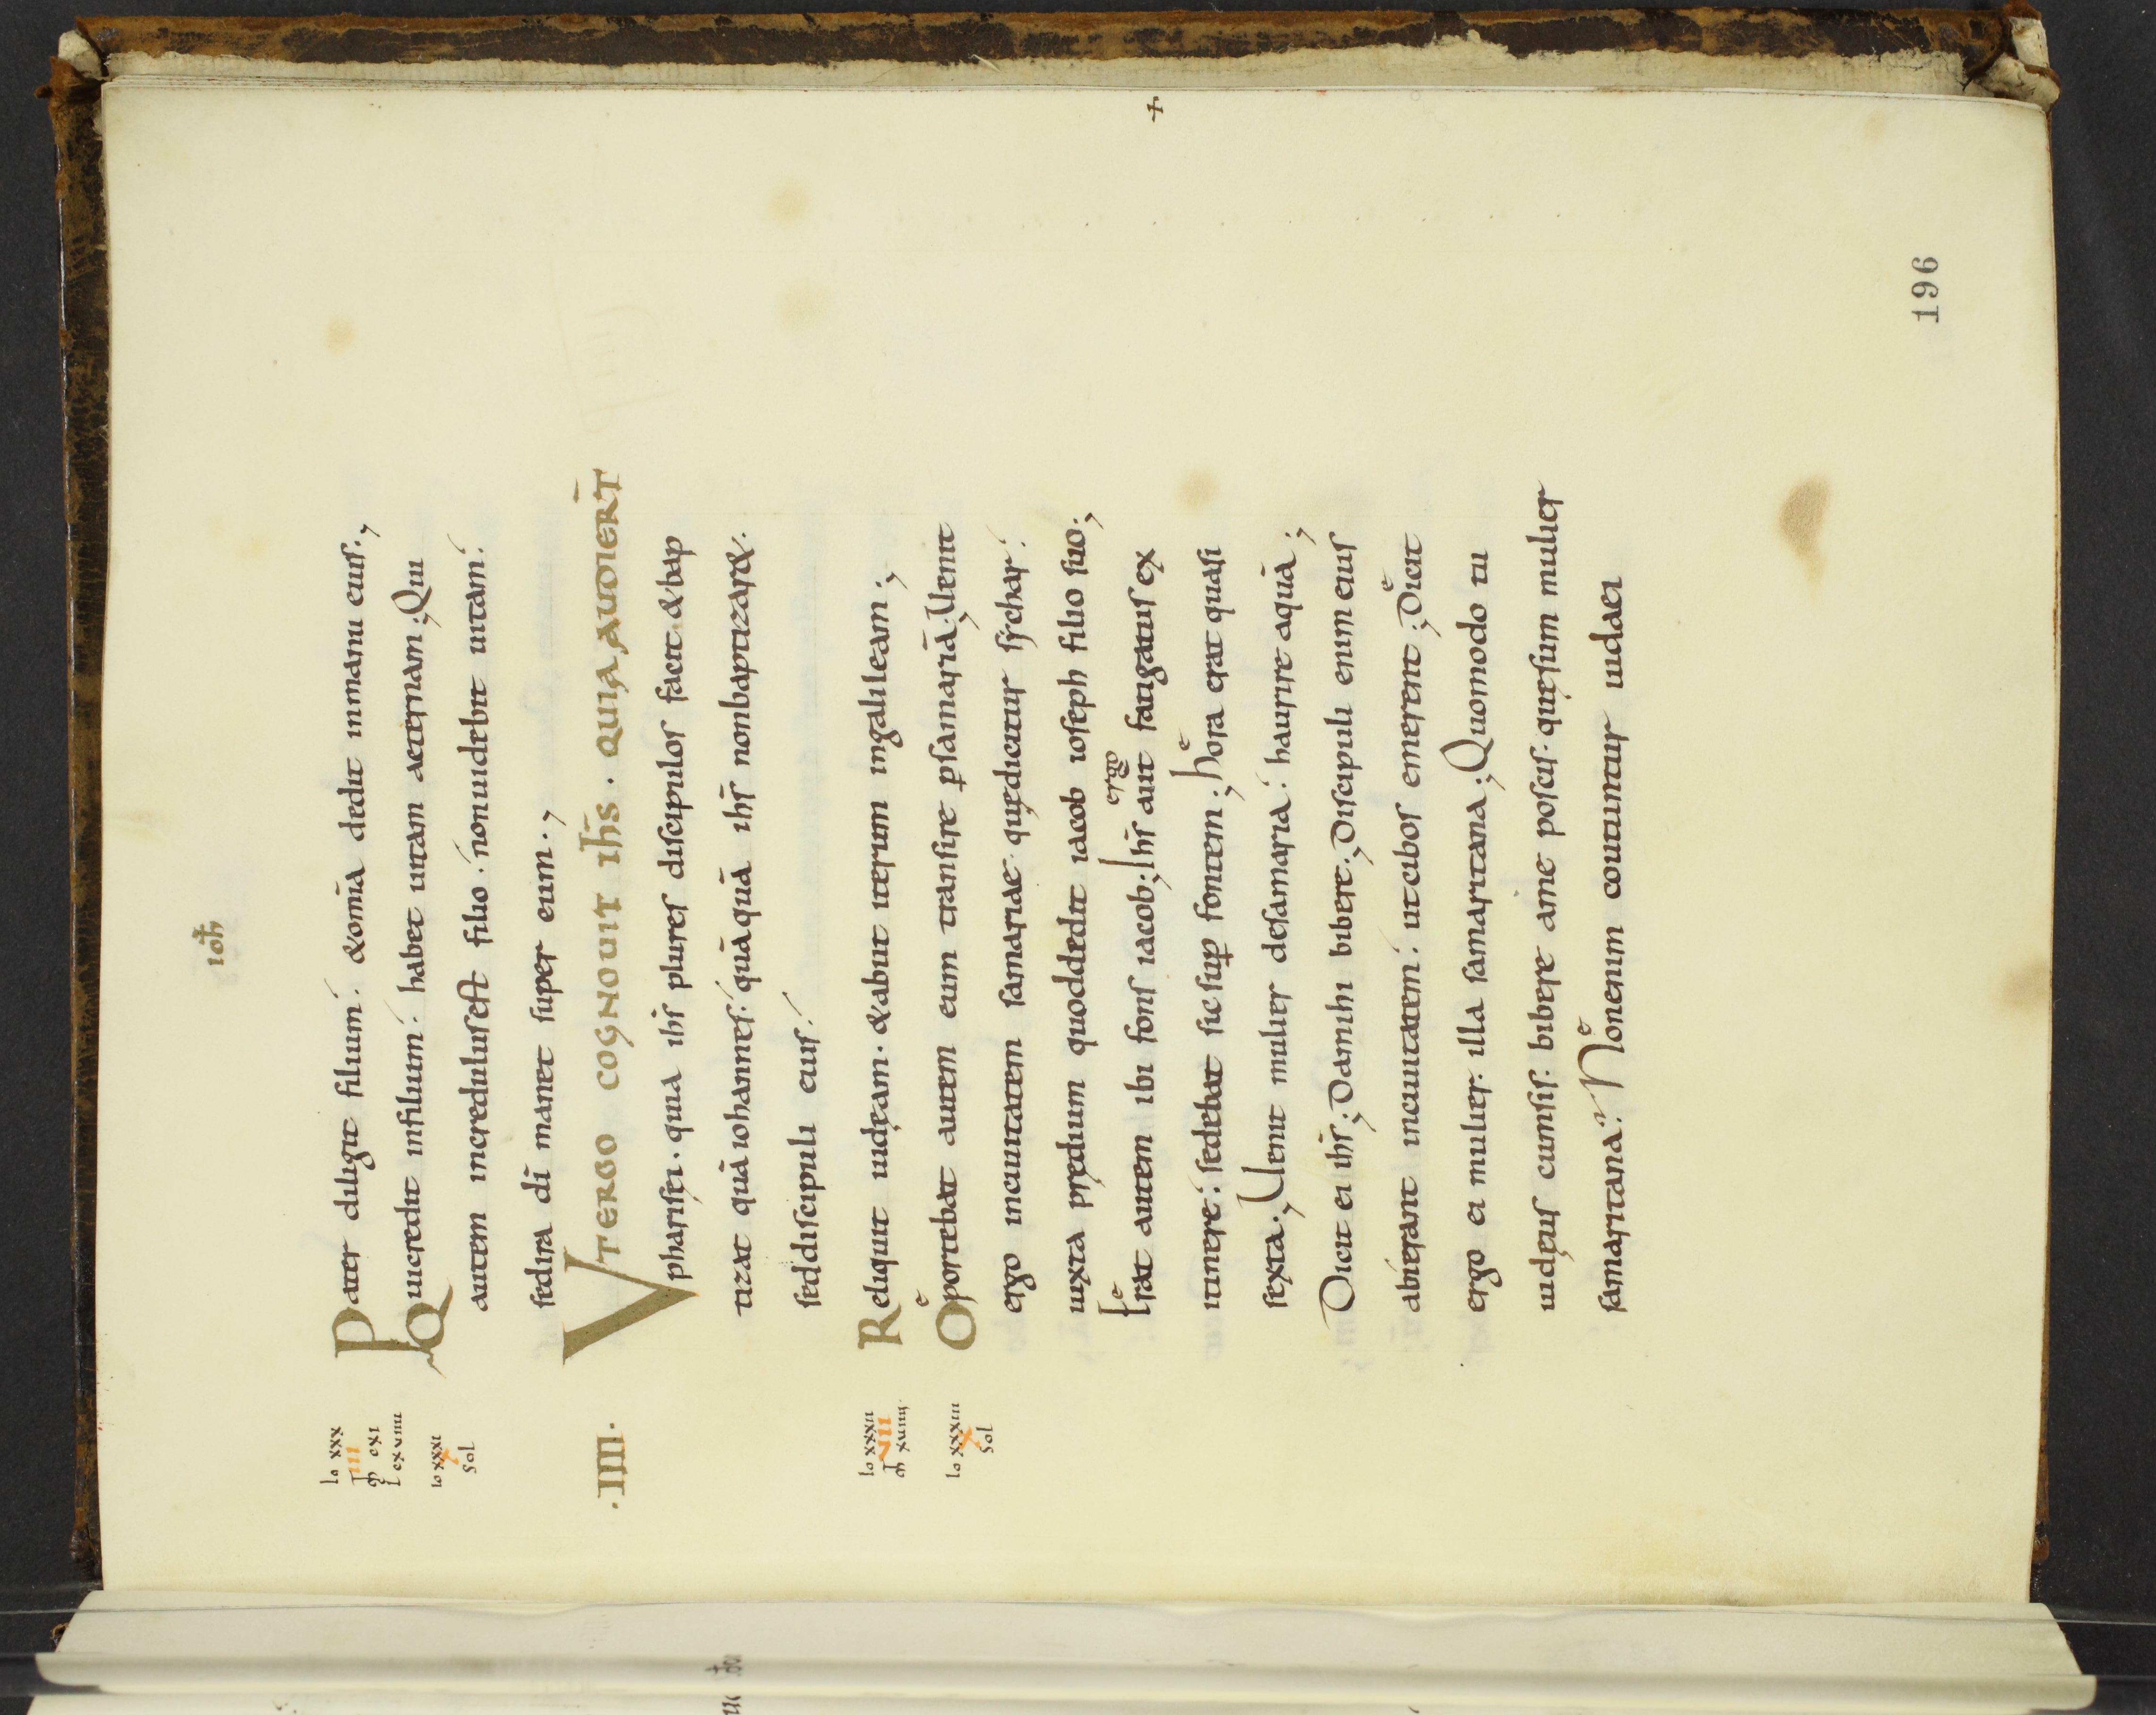 ioh̄
Pater diligit filium. & om̄ia dedit inmanu eius.,
Quicredit infilium. habet uitam aeternam; Qui
autem incredulusest filio. nonuidebit uitam.
sedira dī manet super eum.,
VTERGO COGNOUIT IHS̄. QUIA AUDIERT̄
pharisęi. quia ihs̄ plures discipulos facit & bap
tizat quā iohannes. quāquā ihs̄ nonbaptizar&.
seddiscipuli eius.
Reliquit iudęam. & abiit iterum ingalileam;
Oportebat autem eum transire ꝑsamariā; Uenit
ergo inciuitatem samariae. quędicitur sychar.
iuxta prędium quoddedit iacob ioseph filio suo;
Erat autem ibi fons iacob; Ihs̄ aut fatigatus ex
ergo
itinere. sedebat sic suꝑ fontem; hora erat quasi
sexta; Uenit mulier desamaria. haurire aquā;
Dicit ei ihs̄; Damihi bibere; Discipuli enim eius
abierant inciuitatem. utcibos emerent; Dicit
ergo ei mulier. illa samaritana; Quomodo tu
iudęus cumsis. bibere ame poscis. quęsum mulier
samaritana? Nonenim coutuntur iudaei
Io XXX
III
M CXI
L CXVIIII
Io XXXI
X
Sol
.IIII.
Io XXXII
VII
M XVIIII.
Io XXXIII
X
Sol
196